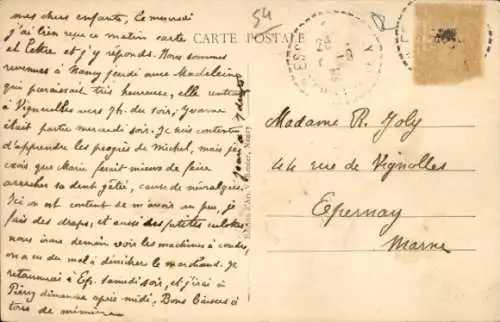 mes chers enfants, le mercredi
j'ai bien reçu ce matin carte
et lettre et j'y réponds. Nous sommes
revenues à Nancy jeudi avec Madeleine
qui paraissait très heureuse, elle
à Vigneulles vers 7h. du soir; Yvonne
était partie mercredi soir. Je suis contente
d'apprendre les progrès de Michel, mais je
crois que Marie ferait mieux de faire
arracher sa dent gâtée, cause de névralgies,
Ici on est content de m'avoir un peu, je
fais des draps, et aussi des petites culottes,
nous irons demain voir les machines à coudre,
on a eu du mal à dénicher le marchand. Je
retournerai à samedi soir, et j'irai à
dimanche après-midi. Bons baisers à
tous de mémère
54
CARTE POSTALE
Nancy
Madame R. Joly
44 rue de Vignolles
Epernay
Marne